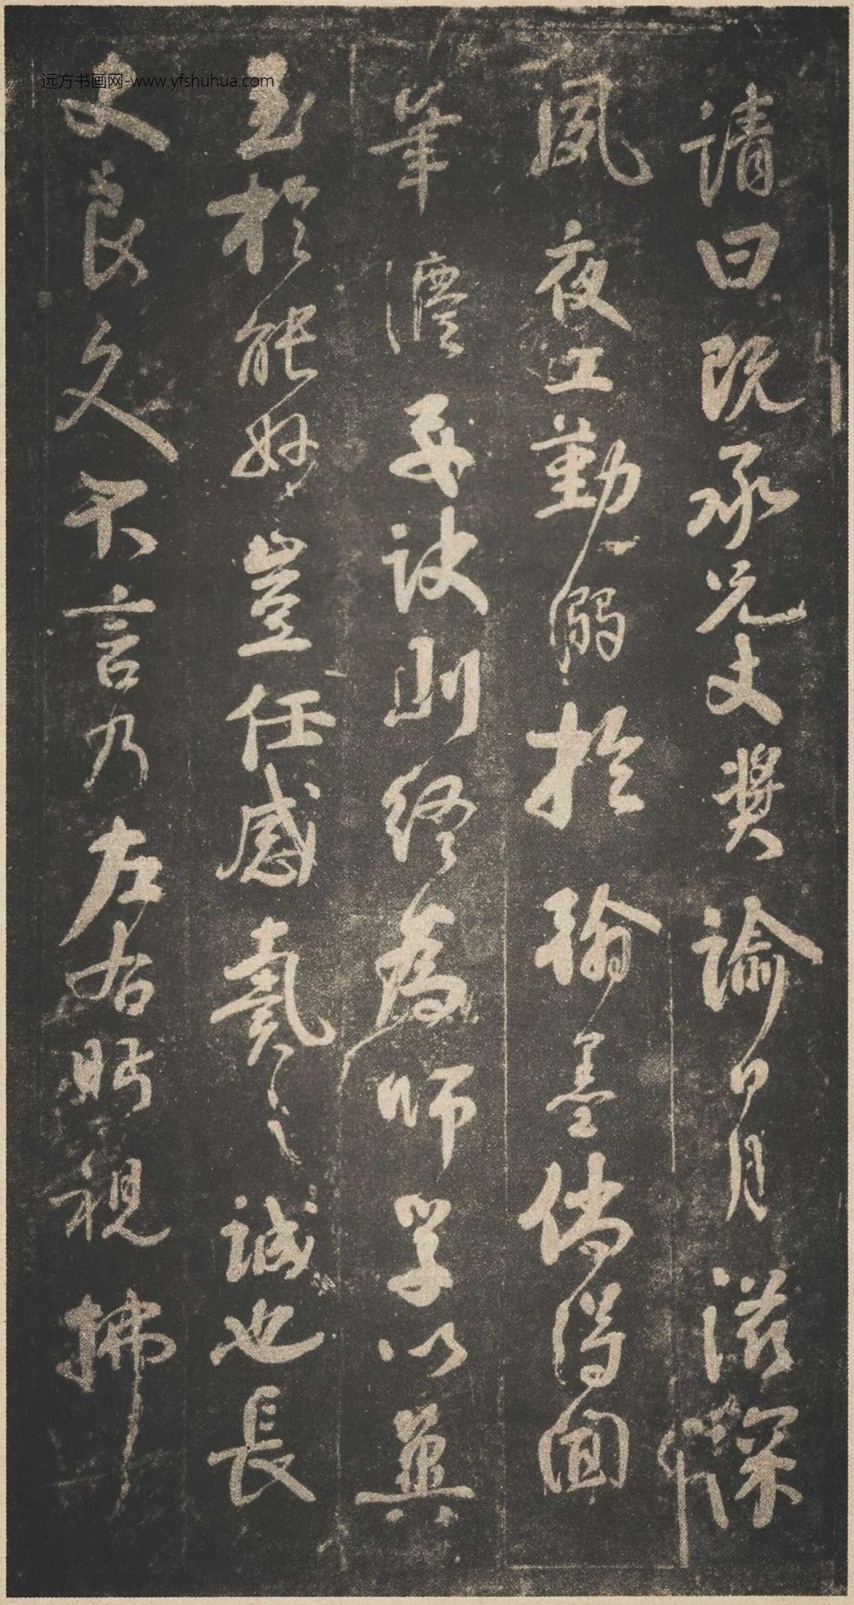 远方书画网-www.yfshuhua.com
請曰既承兄丈奬諭日月滋深
夙夜工勤溺於翰墨倘得聞
筆灋要訣則終為師學以冀
至於能妙豈任感戴之誠也長
史良久不言乃左右眄視拂